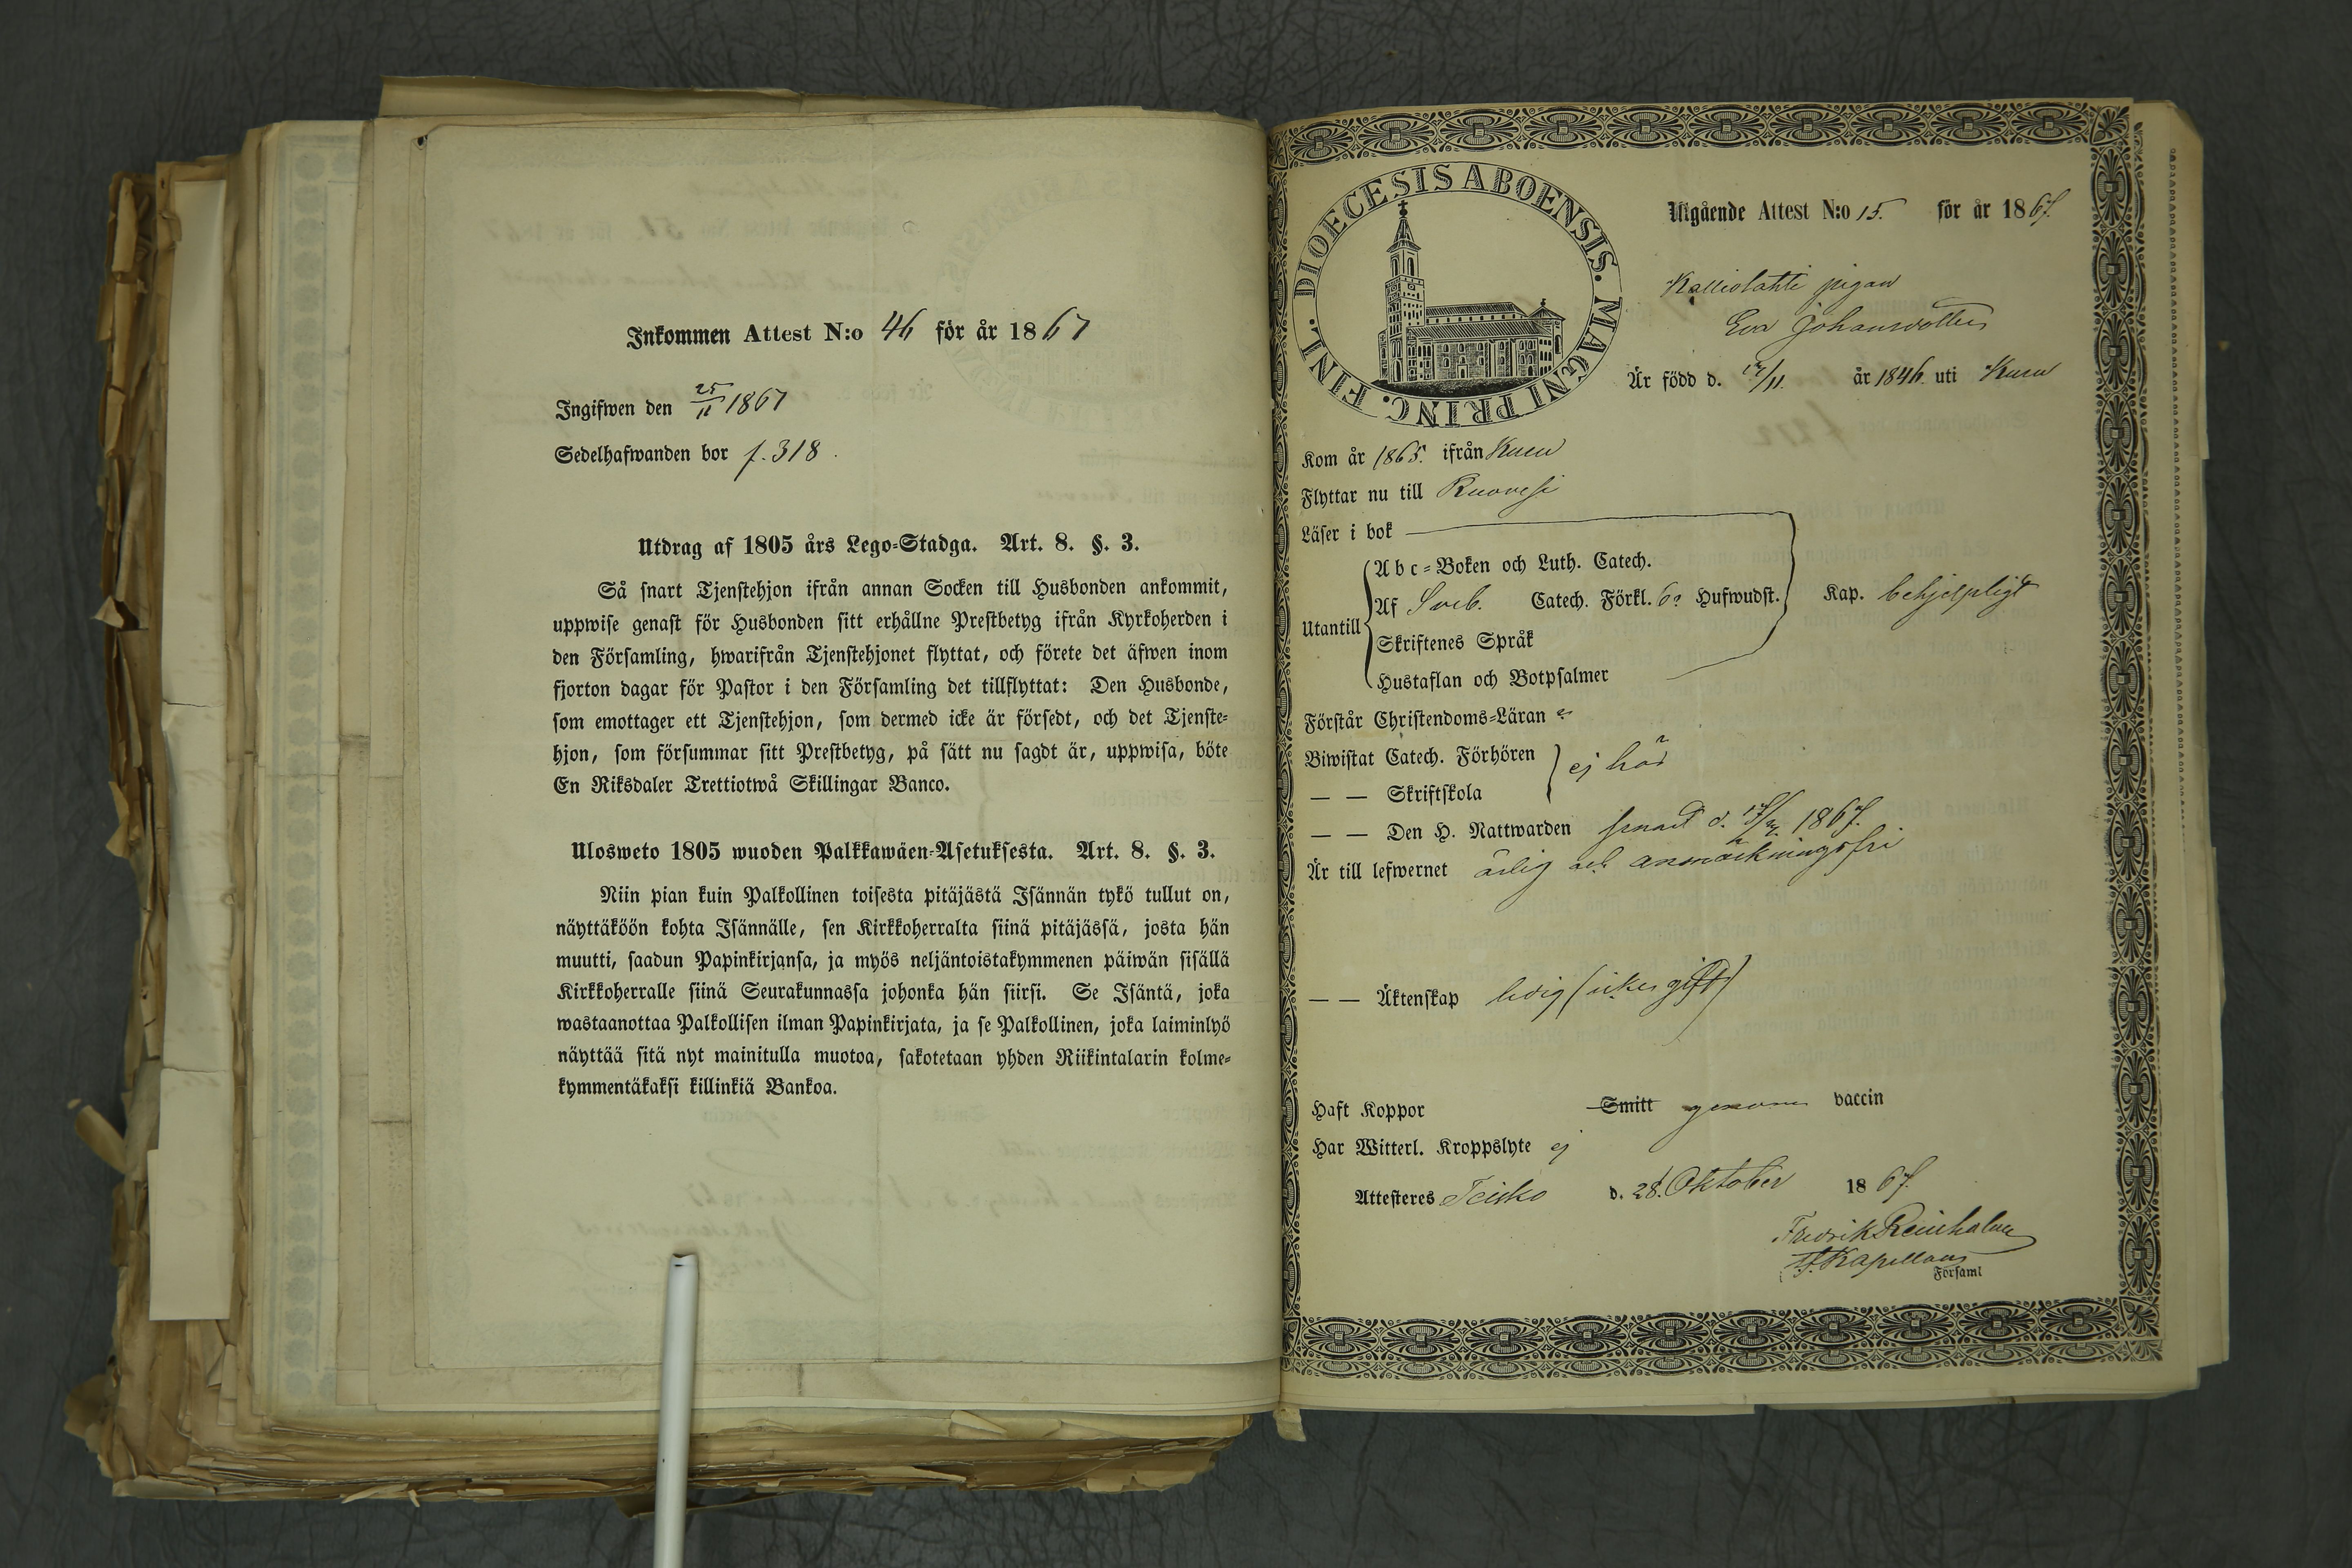 Inkommen Attest N:o 46 för år 1867
Ingifwen den 25/11 1867
Sedelhafwanden bor f. 318.
Utdrag af 1805 års Lego-Stadga. Art. 8. §. 3.
Så snart Tjenstehjon ifrån annan Socken till Husbonden ankommit,
uppwise genast för Husbonden sitt erhållne Prestbetyg ifrån Kyrkoherden i
den Församling, hwarifrån Tjenstehjonet flyttat, och förete det äfwen inom
fjorton dagar för Pastor i den Församling det tillflyttat: Den Husbonde,
som emottager ett Tjenstehjon, som dermed icke är försedt, och det Tjenste-
hjon, som försummar sitt Prestbetyg, på sätt nu sagdt är, uppwisa, böte
En Riksdaler Trettiotwå Skillingar Banco.
Ulosweto 1805 wuoden Palkkawäen-Asetuksesta. Art. 8. §. 3.
Niin pian kuin Palkollinen toisesta pitäjästä Isännän tykö tullut on,
näyttäköön kohta Isännälle, sen Kirkkoherralta siinä pitäjässä, josta hän
muutti, saadun Papinkirjansa, ja myös neljäntoistakymmenen päiwän sisällä
Kirkkoherralle siinä Seurakunnassa johonka hän siirsi. Se Isäntä, joka
wastaanottaa Palkollisen ilman Papinkirjata, ja se Palkollinen, joka laiminlyö
näyttää sitä nyt mainitulla muotoa, sakotetaan yhden Riikintalarin kolme-
kymmentäkaksi killinkiä Bankoa.
DIOECESIS ABOENSIS. MAGNI PRINC. FINL.
Utgående Attest N:o 15. för år 1867.
Kalliolahti pigan
Eva Johansdotter
Är född d. /11. år 1846. uti Kuru
Kom år 1865. ifrån Kuru
Flyttar nu till Ruovesi
Läser i bok
Abc-Boken och Luth. Catech.
Utantill Af Sveb. Catech. Förkl. 6 Hufwudst. Kap. behjelpligt
Skriftenes Språk
Hustaflan och Botpsalmer
Förstår Christendoms-Läran
Biwistat Catech. Förhören ej här
— — Skriftskola
— — Den H. Nattwarden senast d. 1867.
Är till lefwernet ärlig och anmärkningsfri
— — Äktenskap ledig (icke gift)
Haft Koppor Smitt genom vaccin
Har Witterl. Kroppslyte ej
Attesteres Teisko d. 28. Oktober 1867.
Fredrik Reinholm
Kapellan
Församl